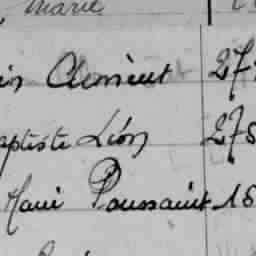 , Marie
in Clement 27
aptiste Léon 275
Marie Poussaint 16